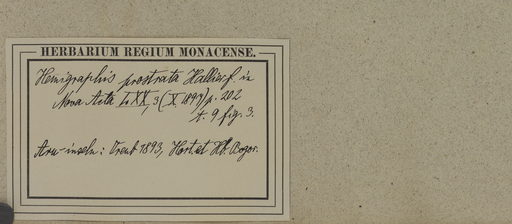 HERBARIUM REGIUM MONACENSE.
Hemigraphis prostrata Hallier f. in
Nova Acta LXX, 3 (X. 1897) p. 202
t. 9 fig. 3.
Aru-inseln: Treub 1893, Hort. et Hb. Bogor.